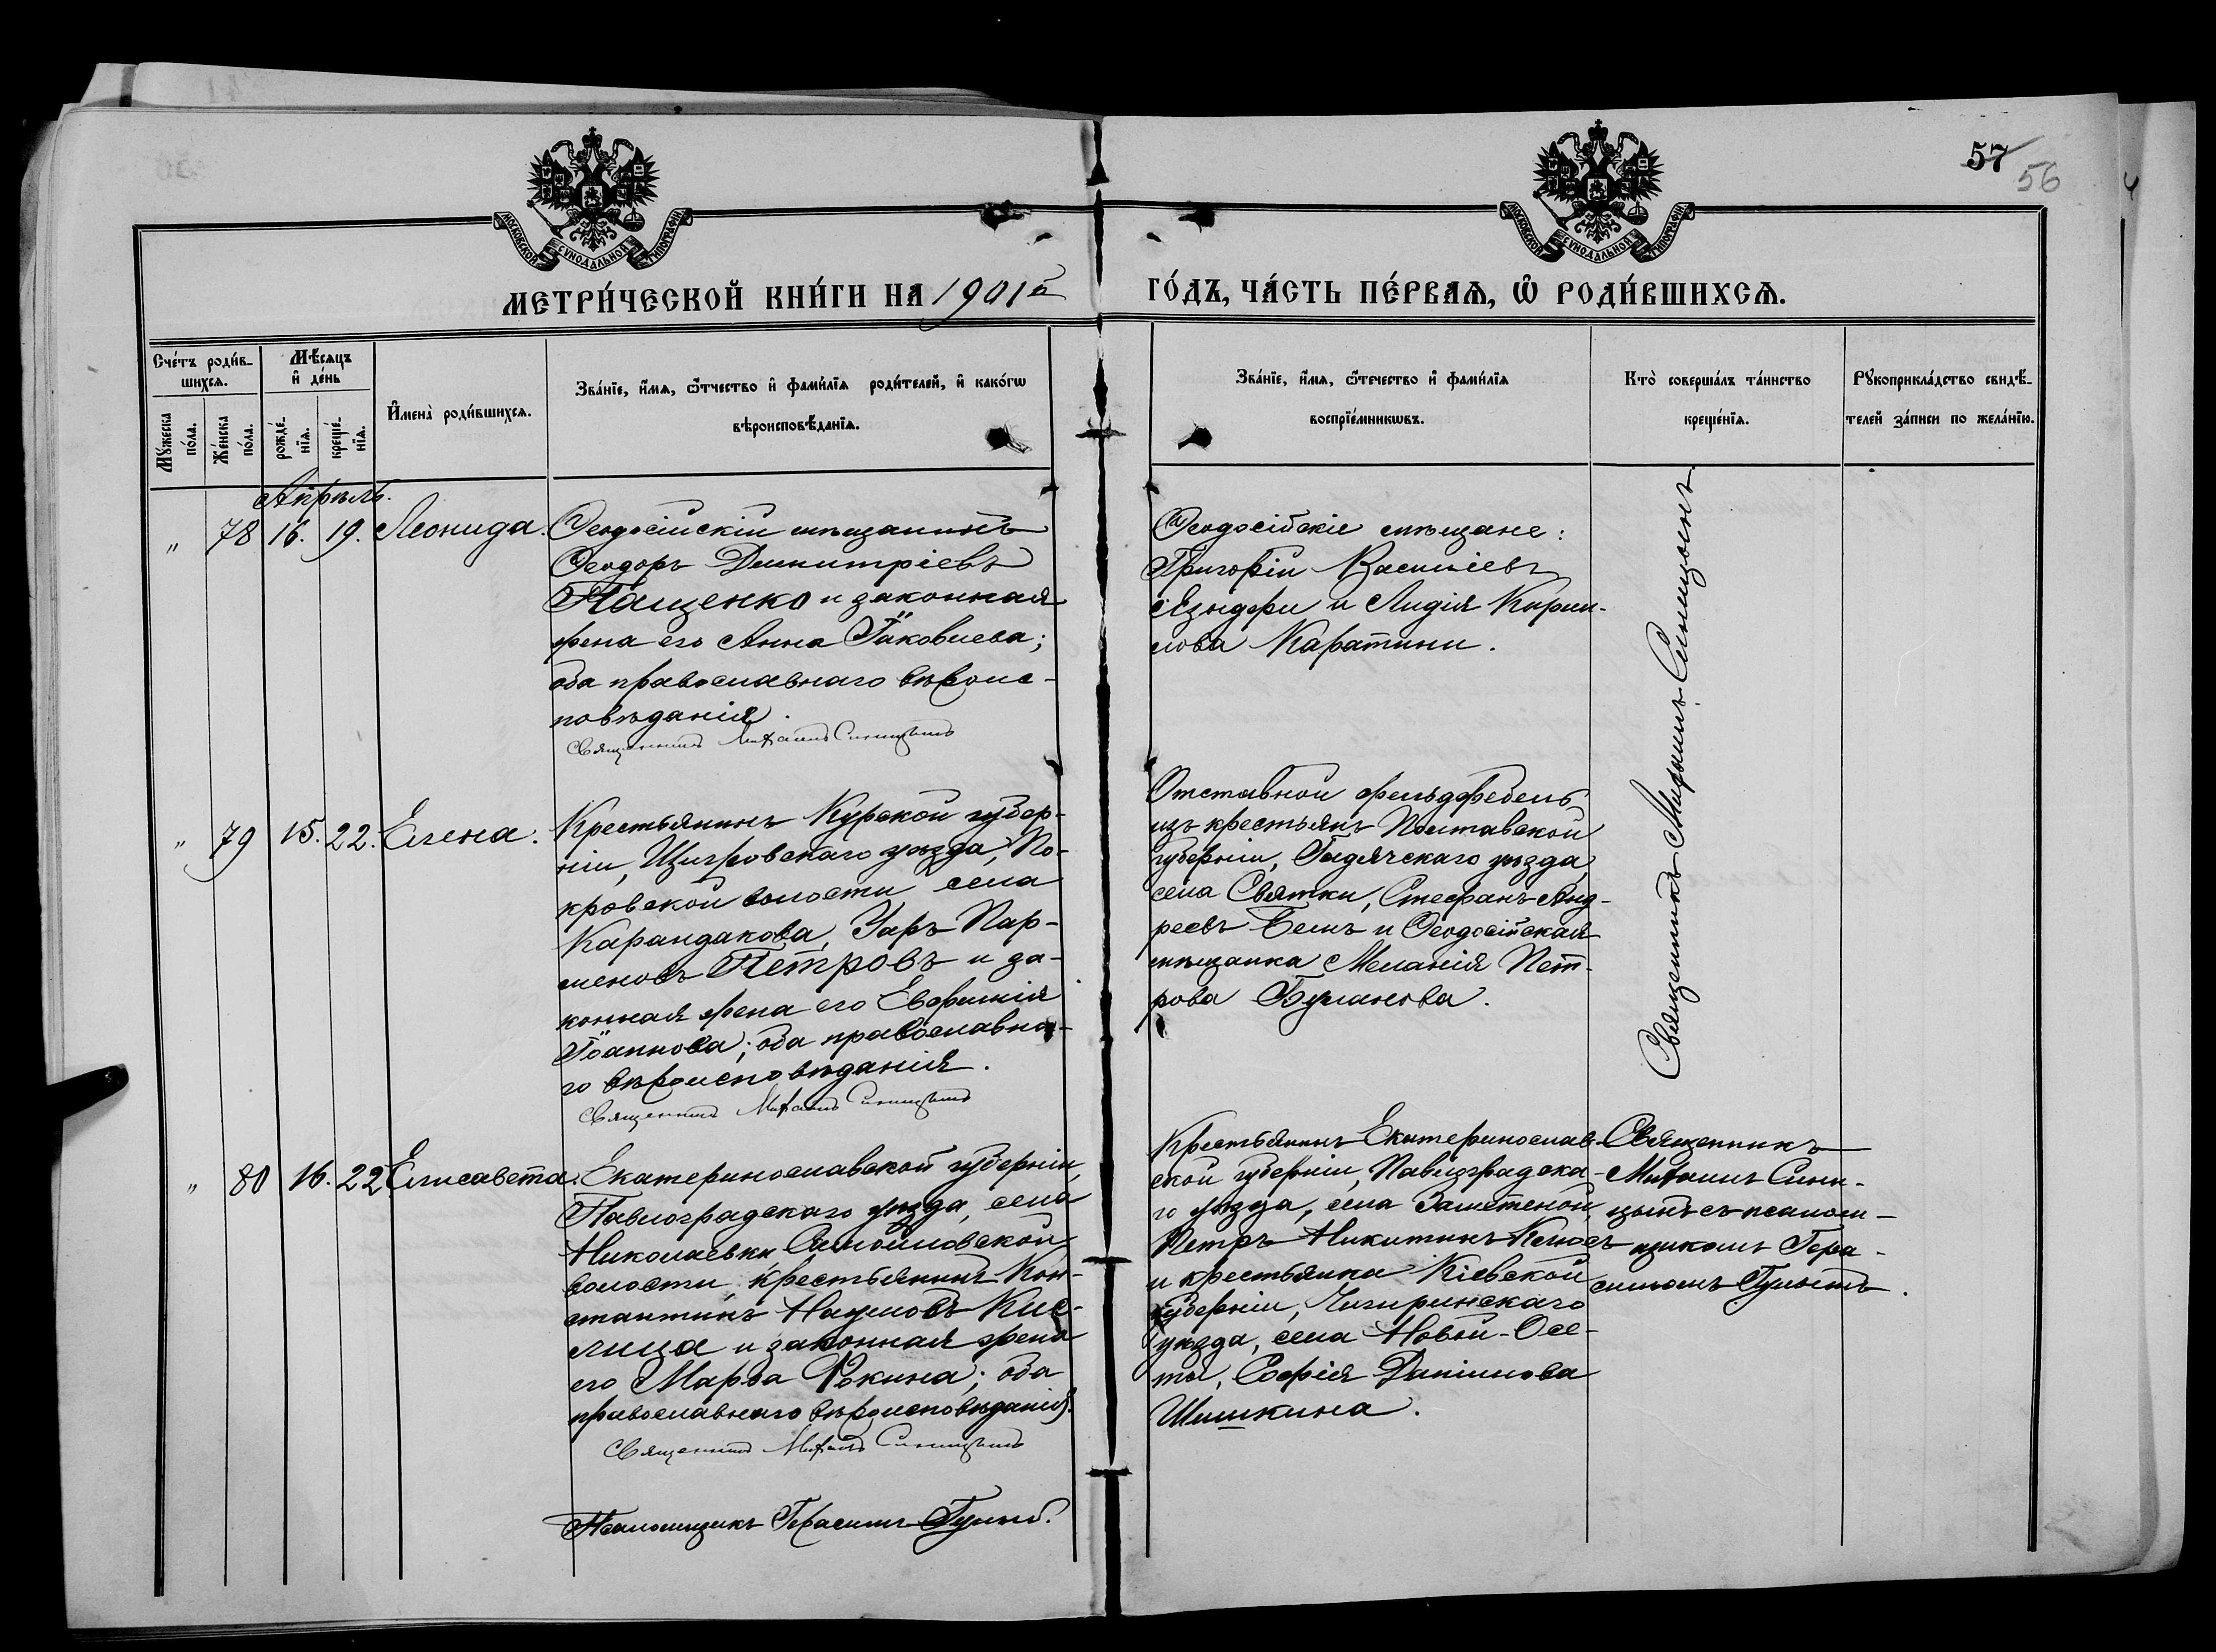 57
56
МОСКОВСКОЙ СѴНОДАЛЬНОЙ ТИПОГРАФІИ
МОСКОВСКОЙ СѴНОДАЛЬНОЙ ТИПОГРАФІИ
МЕТРИ́ЧЕСКОЙ КНИ́ГИ НА 1901й
ГО́ДЪ, ЧА́СТЬ ПЕ́РВАѦ, Ѿ РОДИ́ВШИХСѦ.
Сче́тъ роди́в-
шихсѧ.
Мꙋ́жеска
по́ла.
Же́нска
по́ла.
Мѣ́сѧцъ
и҆ де́нь
рожде́-
нїѧ.
креще́-
нїѧ.
И҆мена̀ роди́вшихсѧ.
Зва́нїе, и҆́мѧ, ѻ҆́тчество и҆ фами́лїѧ роди́телей, и҆ како́гѡ
вѣроисповѣ́данїѧ.
Зва́нїе, и҆́мѧ, ѻ҆́тчество и҆ фами́лїѧ
воспрїе́мникѡвъ.
Кто̀ соверша́лъ та́инство
креще́нїѧ.
Рꙋкоприкла́дство свидѣ́-
телей за́писи по жела́нїю.
Апрѣль.
" 78 16. 19. Леонида.
Ѳеодосійскій мѣщанинъ
Ѳеодоръ Димитріевъ
Пащенко и законная
жена его Анна Іаковлева;
оба православнаго вѣроис-
повѣданія.
Священникъ Михаилъ Синицынъ
Ѳеодосійскіе мѣщане:
Григорій Васильевъ
Язынджи и Лидія Кирил-
лова Каратини.
Священникъ Михаилъ Синицынъ
" 79 15. 22. Елена.
Крестьянинъ Курской губер-
ніи, Щигровскаго уѣзда, По-
кровской волости села
Карандакова, Уаръ Пар-
меновъ Петровъ и за-
конная жена его Евфимія
Іоаннова; оба православна-
го вѣроисповѣданія.
Священникъ Михаилъ Синицынъ
Отставной фельдфебель
изъ крестьянъ Полтавской
губерніи, Гадячскаго уѣзда,
села Святки, Стефанъ Анд-
реевъ Бемъ и Ѳеодосійская
мѣщанка Меланія Пет-
рова Буланова.
" 80 16. 22 Елисавета.
Екатеринославской губерніи,
Павлоградскаго уѣзда, села
Николаевки, Самойловской
волости, крестьянинъ Кон-
стантинъ Наумовъ Кис-
лица и законная жена
его Марѳа Фокина; оба
православнаго вѣроисповѣданія.
Священникъ Михаилъ Синицынъ
Крестьянинъ Екатеринослав-
ской губерніи, Павлоградска-
го уѣзда, села
Петръ Никитинъ
и крестьянка Кіевской
губерніи, Чигиринскаго
уѣзда, села Новой-Осо-
ты, Софія Даніилова
Шишкина.
Священникъ
Михаилъ Сини-
цынъ съ псалом-
щикомъ Гера-
симомъ
Псаломщикъ Герасимъ